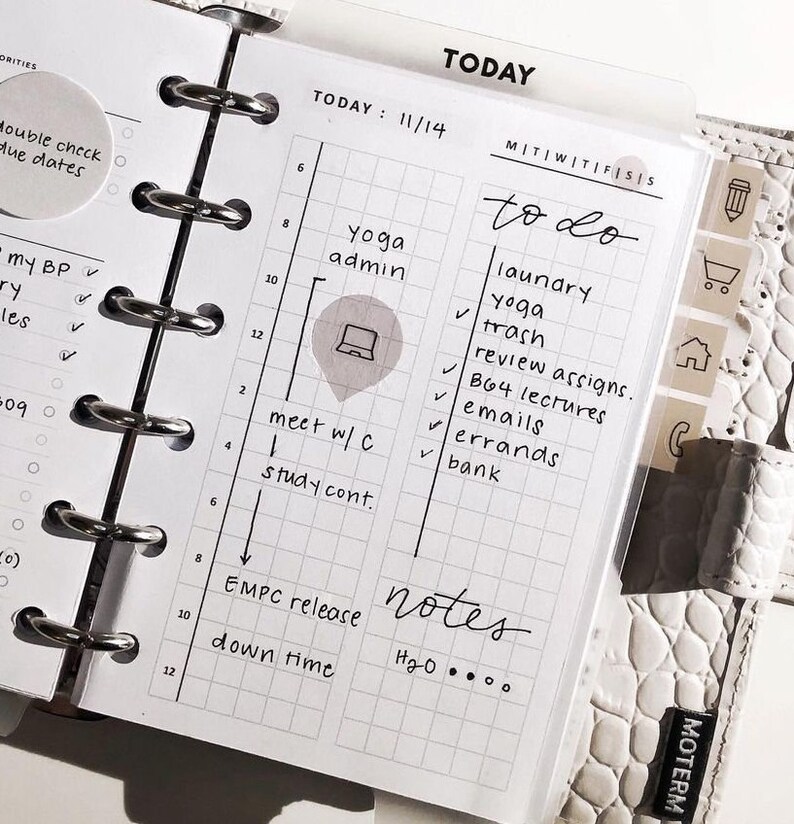 ORITIES
double check
due dates
my BP
ry
les
309
(0)
TODAY
TODAY : 11/14
M|T|W|T|F|S|S
6
8
10
12
2
4
6
8
10
12
yoga
admin
meet w/ C
study cont.
EMPC release
down time
to do
laundry
yoga
trash
review assigns.
BG4 lectures
emails
errands
bank
notes
H2O
MOTERM